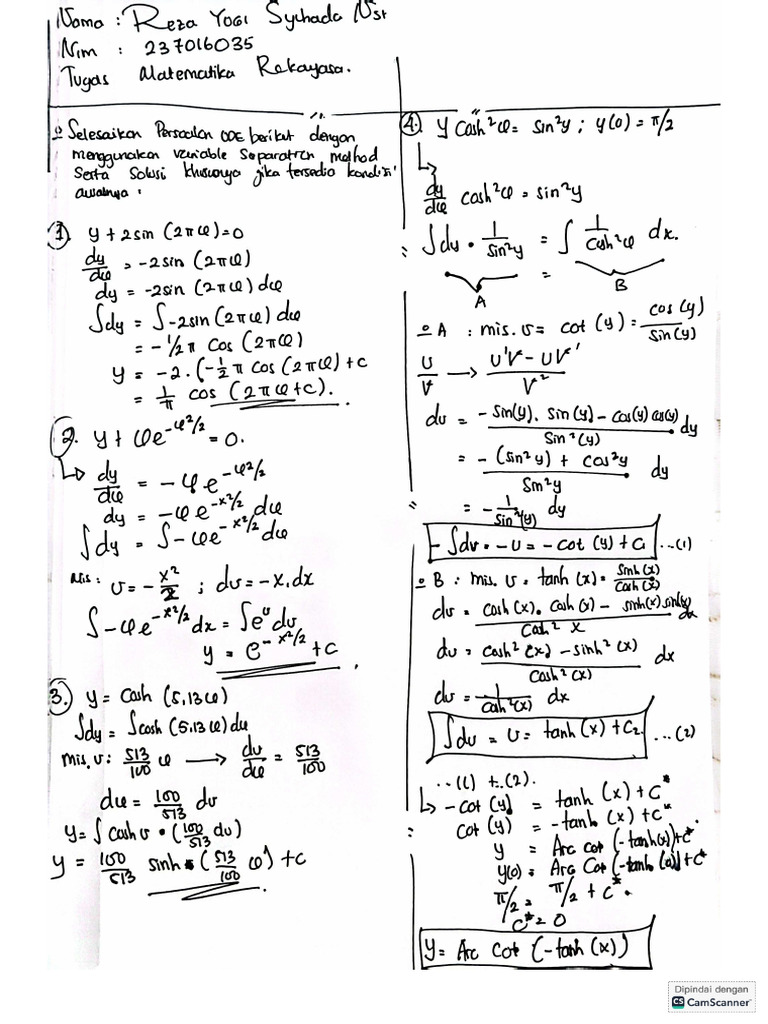 Nama : Reza Yogi Syahada Nst
Nim : 237016035
Tugas Matematika Rekayasa.
Selesaikan Persoalan ODE berikut dengan
menggunakan variable separation method
serta solusi khususnya jika tersedia kondisi
awalnya :
1. y + 2sin (2πφ) = 0
dy/dφ = -2sin (2πφ)
dy = -2sin (2πφ) dφ
∫dy = ∫-2sin (2πφ) dφ
= -1/2π cos (2πφ)
y = -2. (-1/2π cos (2πφ) + c
= 1/π cos (2πφ + c).
2. y + φe^(-φ²/2) = 0.
↳ dy/dφ = -φe^(-φ²/2)
dy = -φe^(-x²/2) dφ
∫dy = ∫-φe^(-x²/2) dφ
Mis : u = -x²/2 ; du = -x.dx
∫-φe^(-x²/2) dx = ∫e^u du
y = e^(-x²/2) + c
3. y = cash (5,13φ)
∫dy = ∫cosh (5,13φ) dφ
mis. u : 513/100 φ → du/dφ = 513/100
dφ = 100/513 du
y = ∫cash u • (100/513 du)
y = 100/513 sinh • (513/100 φ) + c
4. y cash²φ = sin²y ; y(0) = π/2
↳
dy/dφ cash²φ = sin²y
∫du • 1/sin²y = ∫ 1/cash²φ dx.
A = B
A : mis. u = cot (y) = cos (y)/sin (y)
U/V → U'V - UV'/V²
du = -sin(y). sin(y) - cos(y) cos(y)/sin²(y) dy
= -(sin²y) + cos²y/sin²y dy
= -1/sin²(y) dy
-∫du = -u = -cot (y) + C₁ ...(1)
B : mis. u = tanh (x) = sinh (x)/cash (x)
du = cash (x). cash (x) - sinh(x) sinh(x)/cash² x dx
du = cash² (x) - sinh² (x)/cash² (x) dx
du = 1/cah²(x) dx
∫du = u = tanh (x) + C₂ ...(2)
...(1) + ..(2).
↳ -cot (y) = tanh (x) + C*
cot (y) = -tanh (x) + C*
y = Arc cot (-tanh(x)) + C*
y(0) = Arc Cot (-tanh (0)) + C*
π/2 = π/2 + C*
C* = 0
y = Arc cot (-tanh (x))
Dipindai dengan
CS CamScanner